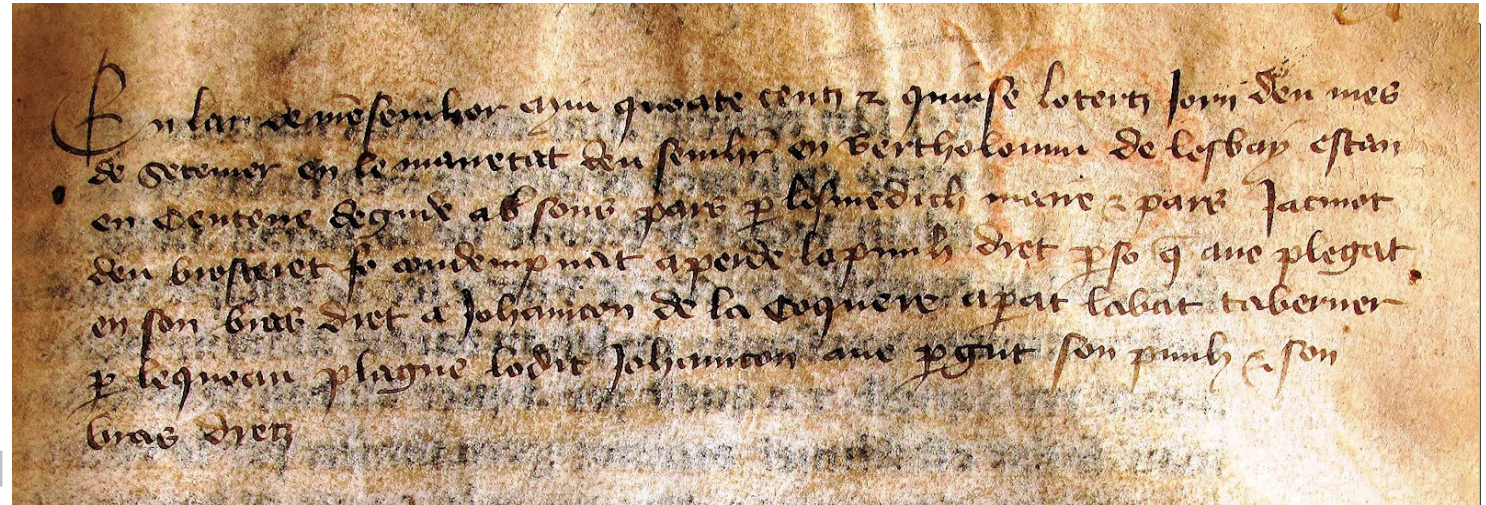 En lan de nre senhor miu quoate centz & quinse lo tertz jorn deu mes
de setemer en le mauetat deu senhr en Bertholomiu de Lesbay estan
en Centene degude ab sons pars per losmedich maire & pars Jacmet
deu Brosteret fo condempnat a perde lo punh dret per so q aue plegat
en son bras dret a Johanicon de la Coquere aperat labat taberner
per lequoau plague lodit Johanicon aue pergut son punh & son
bras dretz